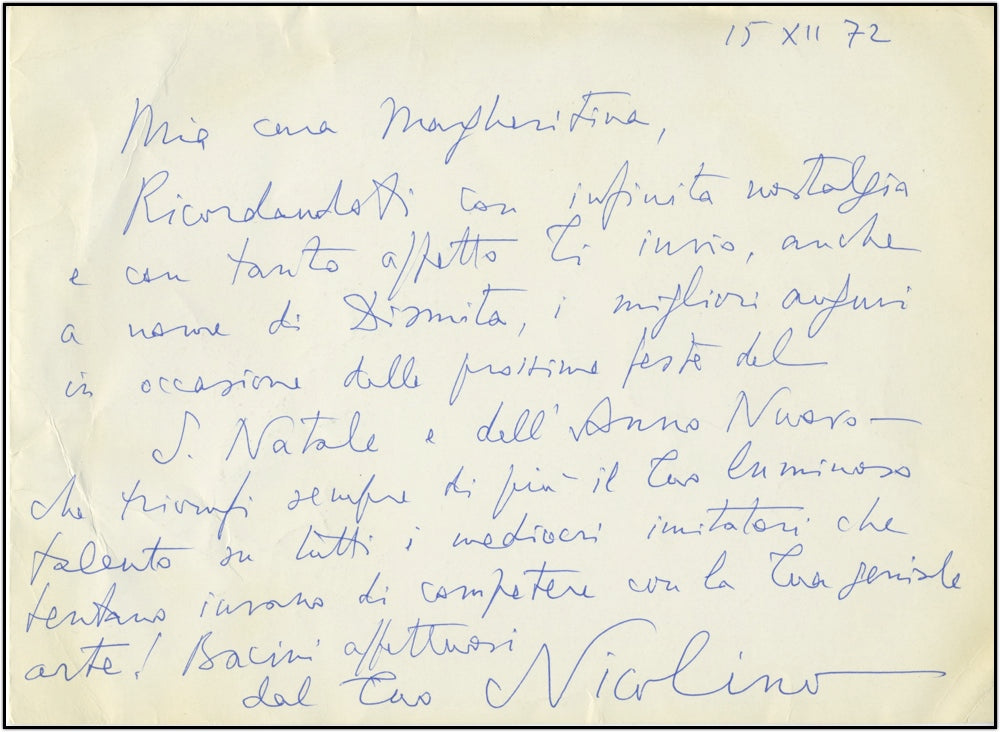 15 XII 72
Mia cara Margheritina,
Ricordandoti con infinita nostalgia
e con tanto affetto Ti invio, anche
a nome di Dismita, i migliori auguri
in occasione delle prossime feste del
S. Natale e dell'Anno Nuovo —
che trionfi sempre di più il Tuo luminoso
talento su tutti i mediocri imitatori che
tentano invano di competere con la Tua geniale
arte! Bacini affettuosi
dal Tuo Nicolino